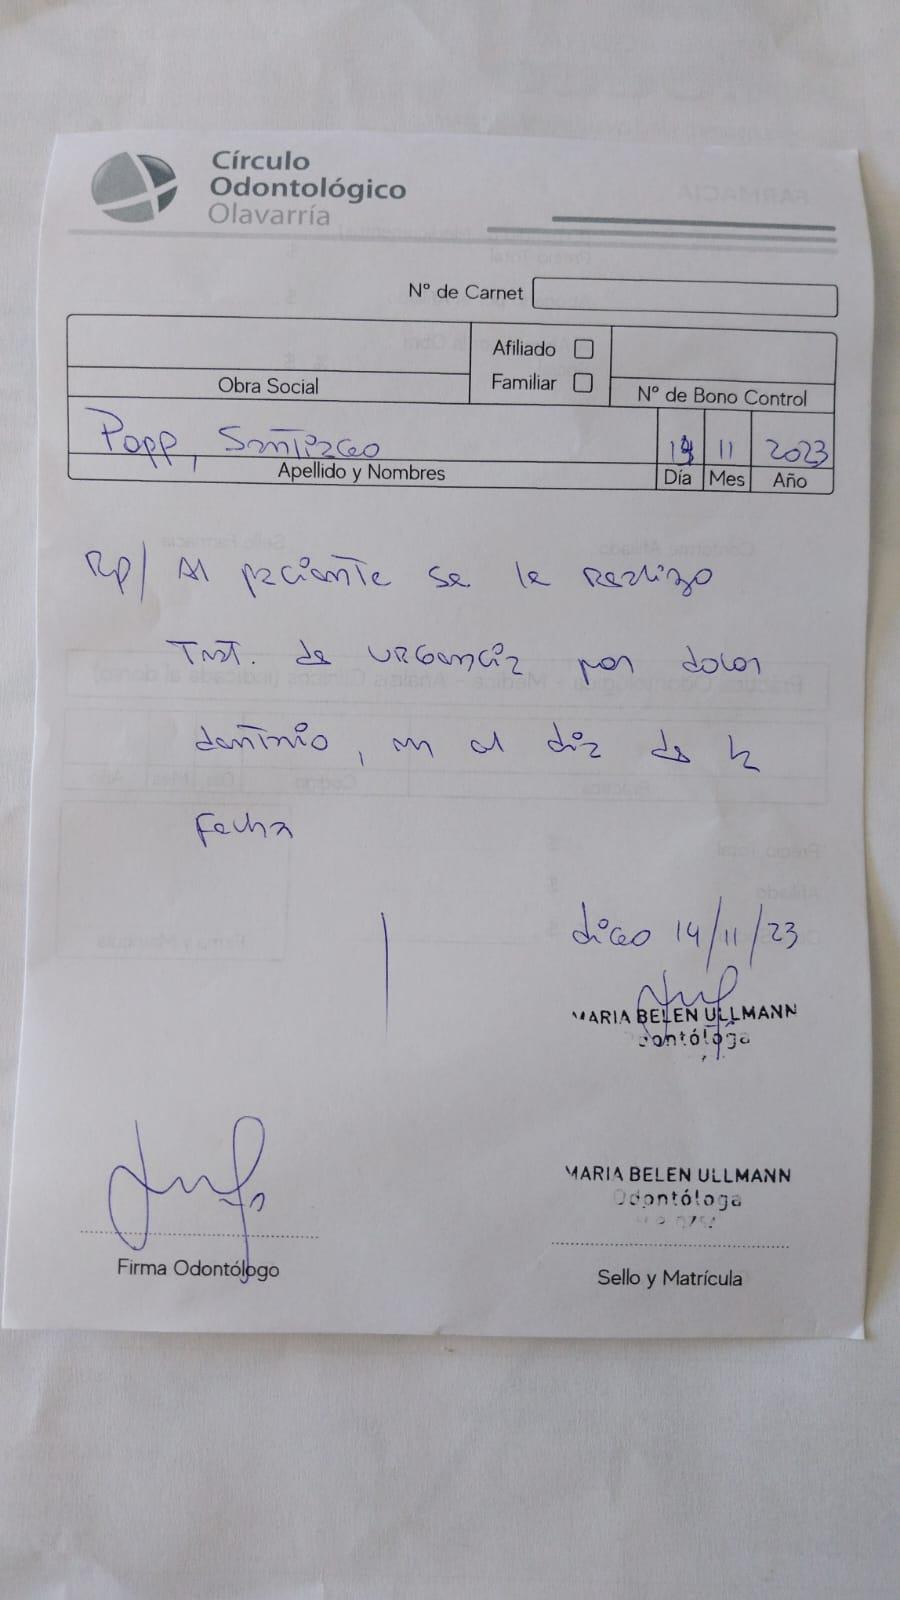 Círculo
Odontológico
Olavarría
Nº de Carnet
Afiliado
Familiar
Obra Social
Nº de Bono Control
Popp, Santiago 14 11 2023
Apellido y Nombres Día Mes Año
Rp/ Al paciente se le realizo
Trat. de urgencia por dolor
dentario, en el dia de la
fecha
digo 14/11/23
MARIA BELEN ULLMANN
Odontóloga
MARIA BELEN ULLMANN
Odontóloga
Firma Odontólogo
Sello y Matrícula